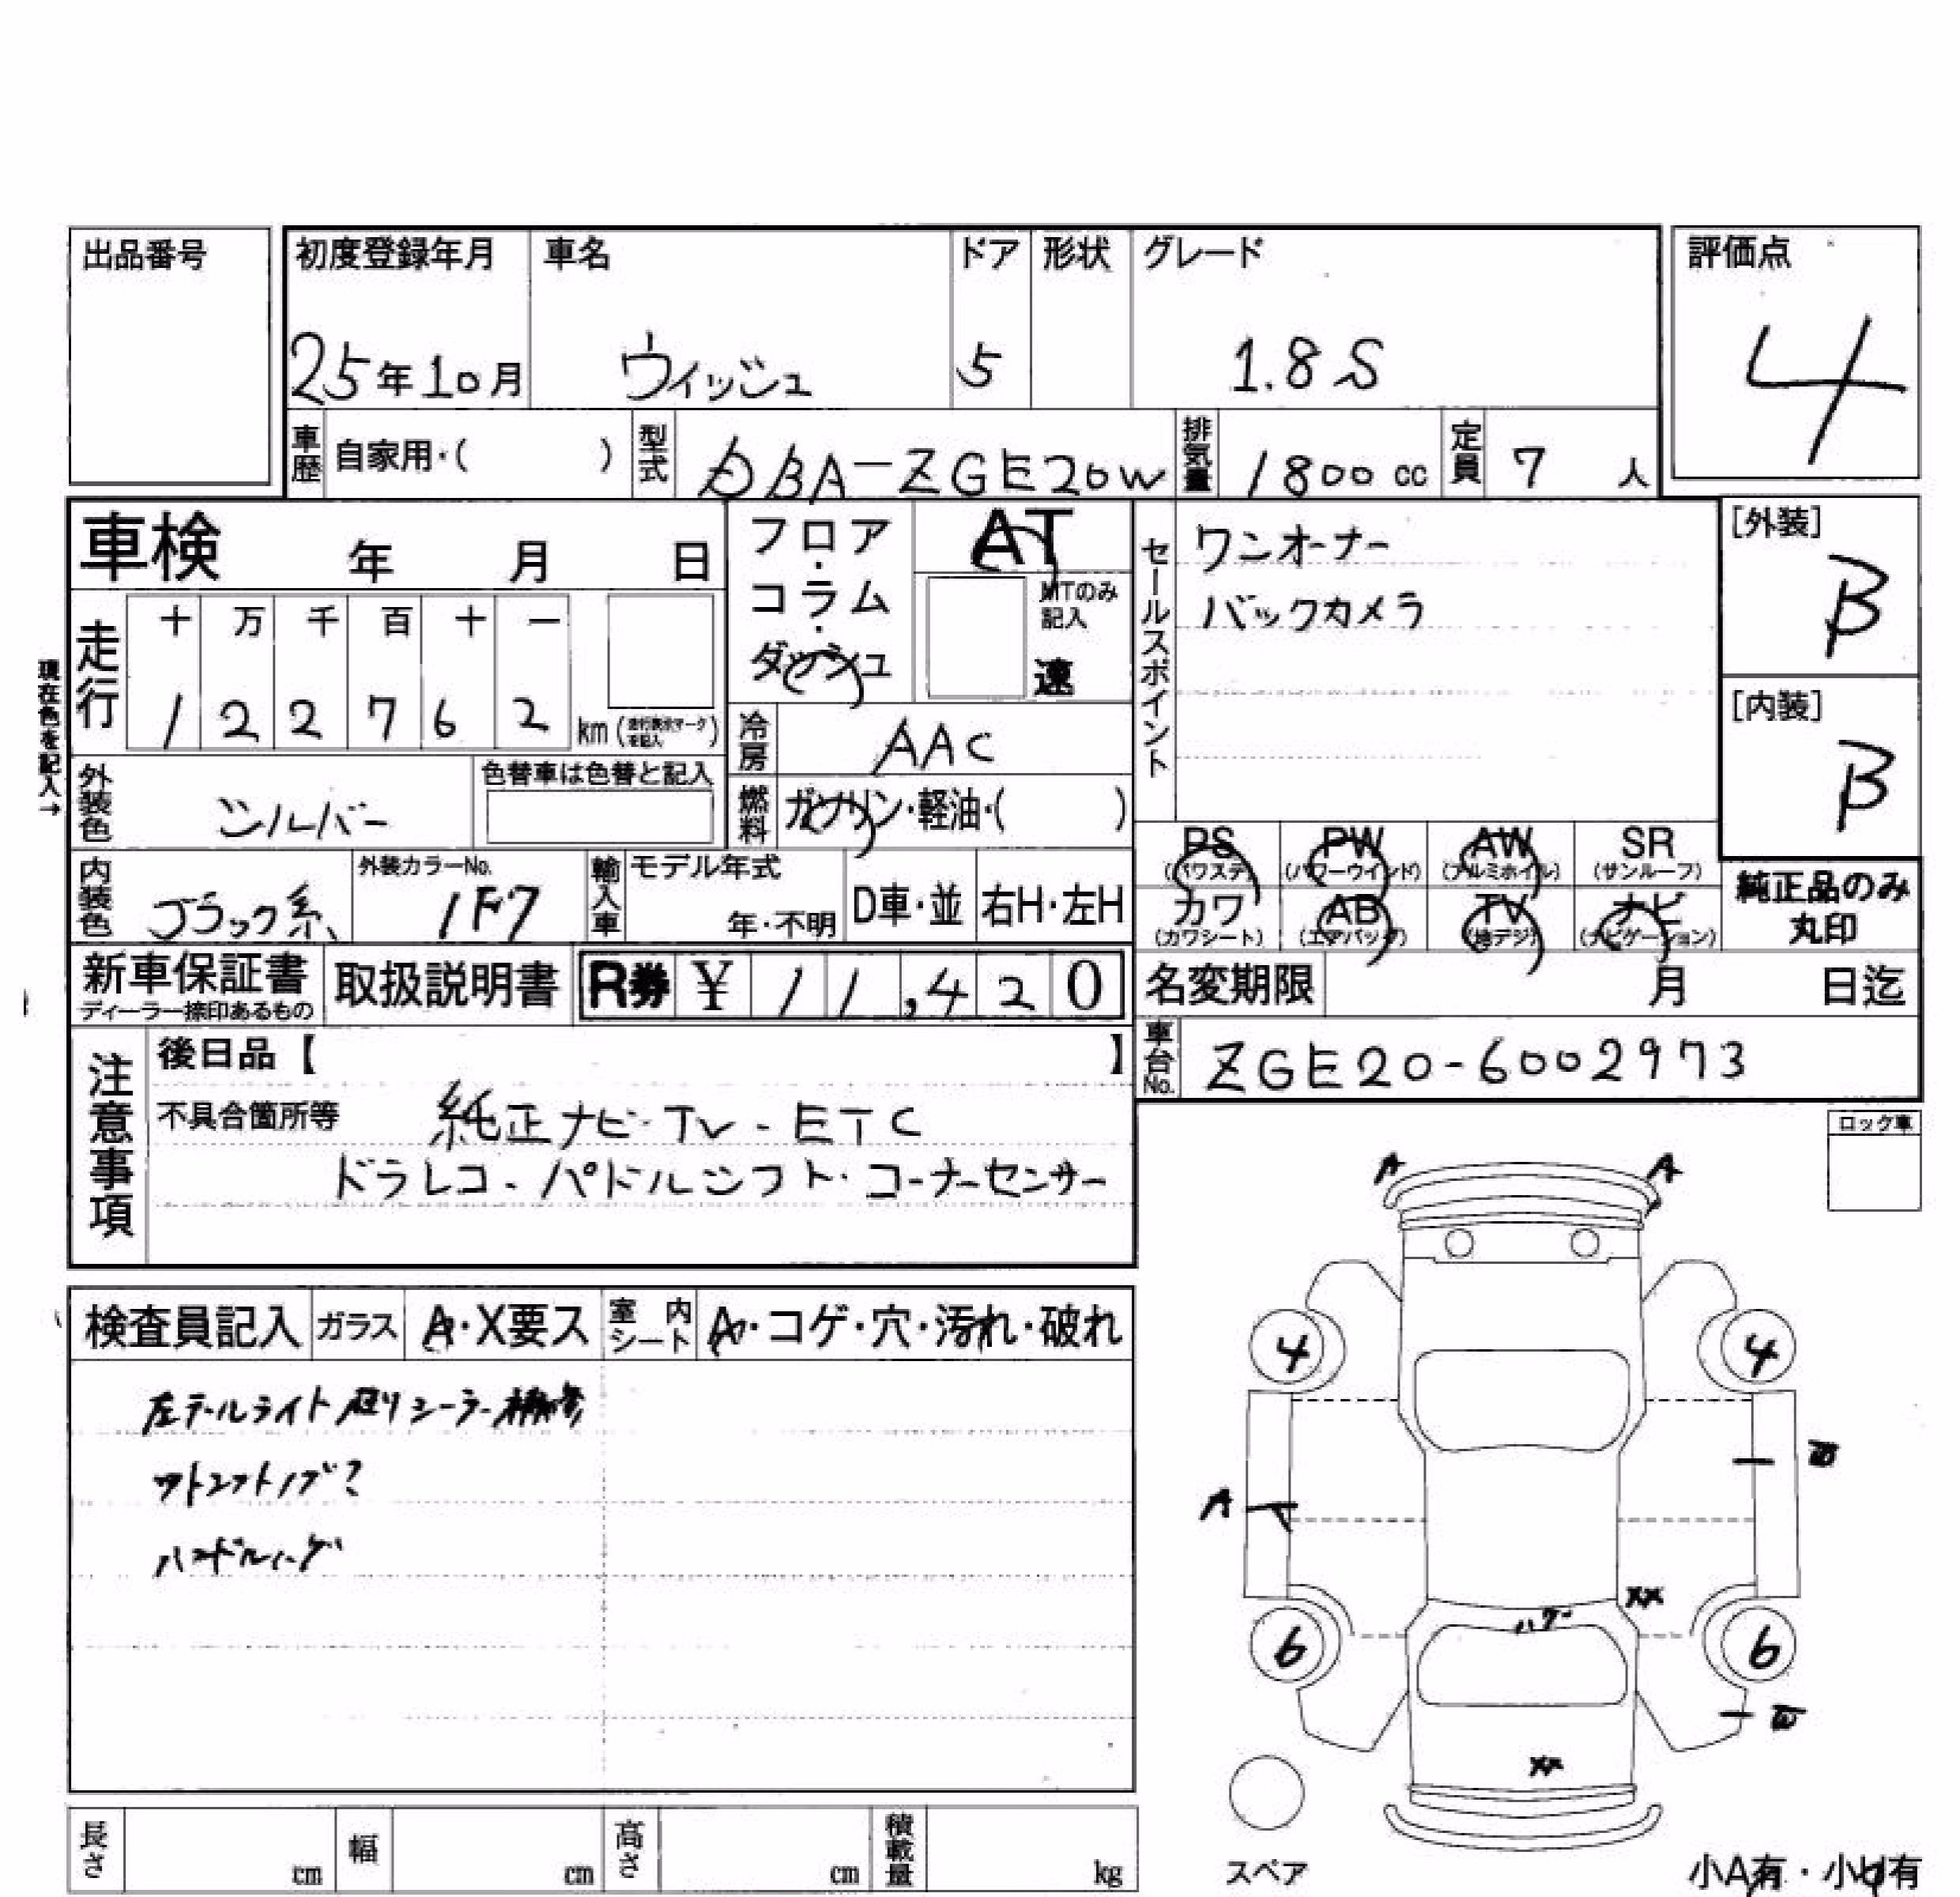 出品番号
初度登録年月 車名 ドア 形状 グレード 評価点
25年10月 ウィッシュ 5 1.8S 4
車歴 自家用・( ) 型式 DBA-ZGE20W 排気量 1800cc 定員 7人
車検 年 月 日
フロア・コラム・ダッシュ AT
MTのみ記入 速
セールスポイント
ワンオーナー
バックカメラ
[外装] B
[内装] B
現在色を記入→
走行 十 万 千 百 十 一
1 2 2 7 6 2 km (走行表示マークを記入)
冷房 AAC
外装色 シルバー 色替車は色替と記入
燃料 ガソリン・軽油・( )
PS (パワステ) PW (パワーウインド) AW (アルミホイル) SR (サンルーフ)
カワ (カワシート) AB (エアバッグ) TV (地デジ) ナビ (ナビゲーション)
純正品のみ丸印
内装色 ブラック系 外装カラーNo. 1F7 輸入車 モデル年式 年・不明 D車・並 右H・左H
新車保証書 ディーラー捺印あるもの 取扱説明書 R券 ¥ 11,420
名変期限 月 日迄
車台No. ZGE20-6002973
注意事項
後日品【 】
不具合箇所等 純正ナビ・TV・ETC
ドラレコ・パドルシフト・コーナーセンサー
ロック車
検査員記入 ガラス A・X要ス 室内シート A・コゲ・穴・汚れ・破れ
左テールライト廻りシーラー補修
A A
4 4
A
XX
6 6
XX
スペア
長さ cm 幅 cm 高さ cm 積載量 kg
小A有・小U有